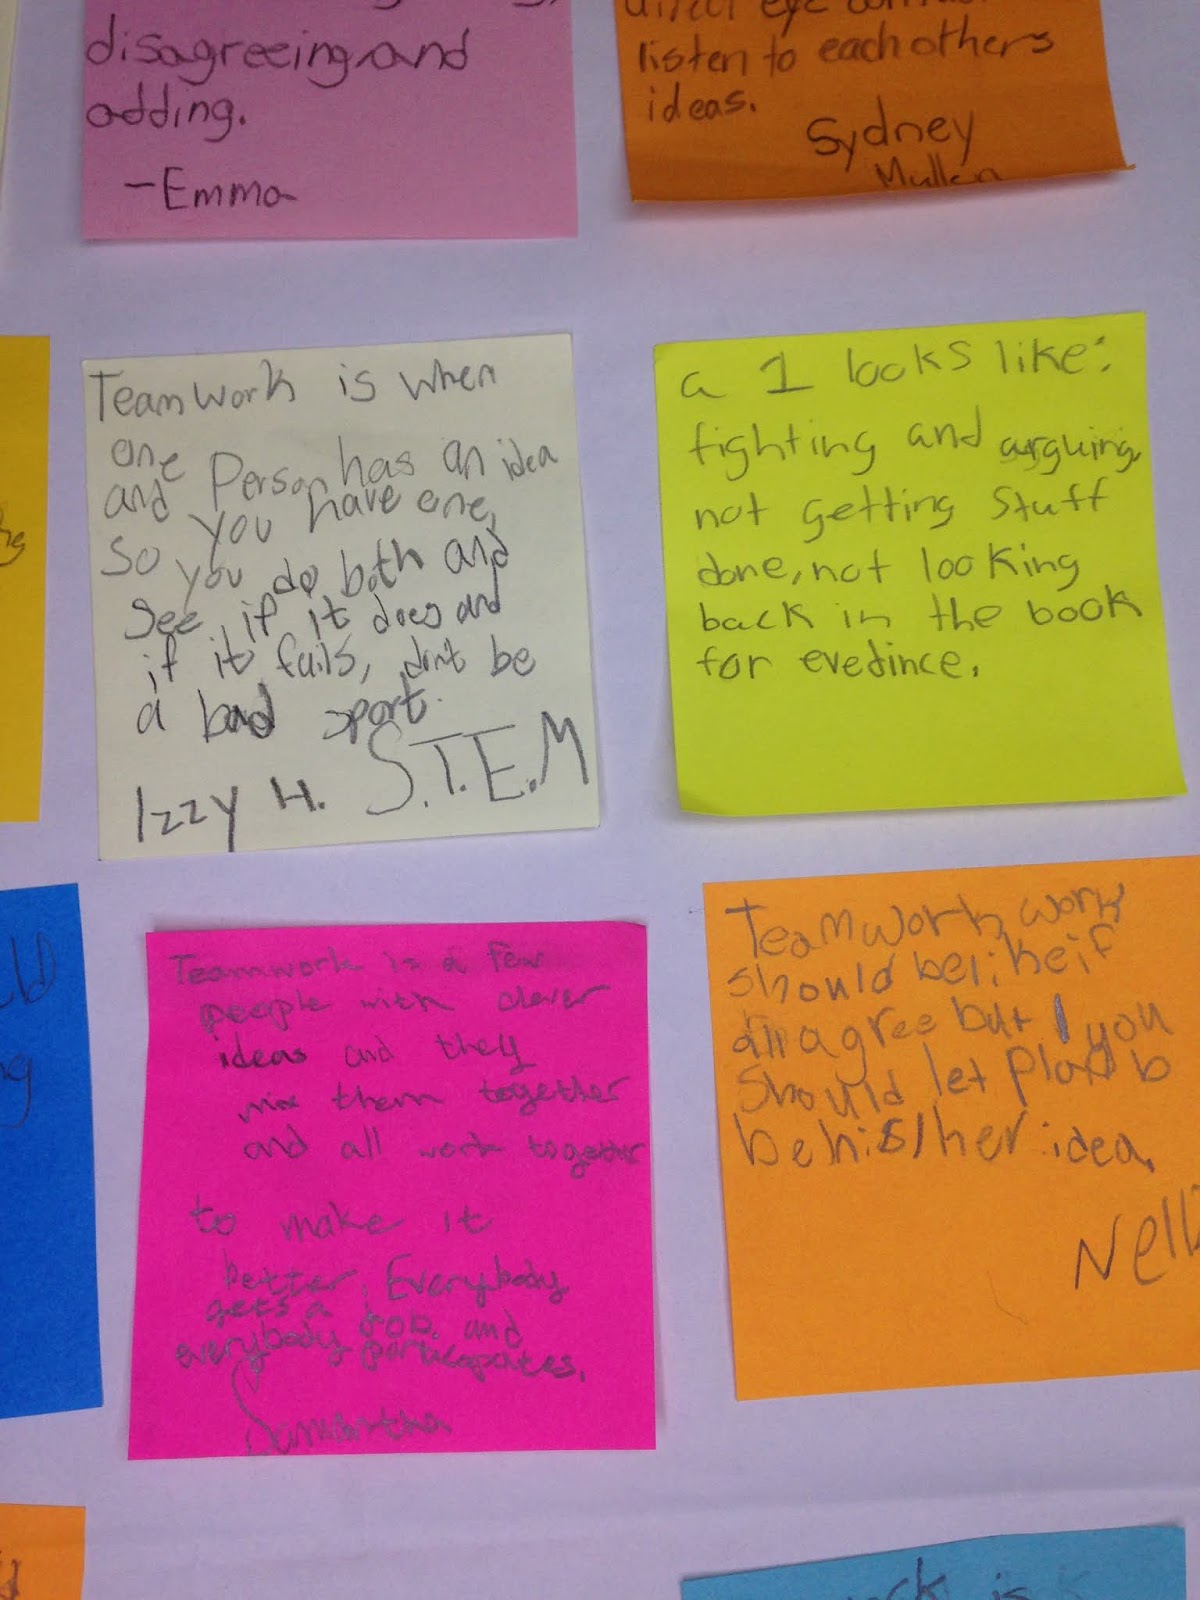 disagreeing and
adding.
-Emma
direct eye contact
listen to eachothers
ideas.
Sydney
Mullen
Teamwork is when
one person has an idea
and you have one,
so you do both and
see if it does and
if it fails, don't be
a bad sport.
Izzy H. S.T.E.M
a 1 looks like:
fighting and arguing,
not getting stuff
done, not looking
back in the book
for evedince.
Teamwork is a few
people with clever
ideas and they
mix them together
and all work together
to make it
better. Everybody
gets a job. and
everybody participates.
Samantha
Teamwork work
should be like if
all agree but you
should let plan b
be his/her idea.
Nell
ck is